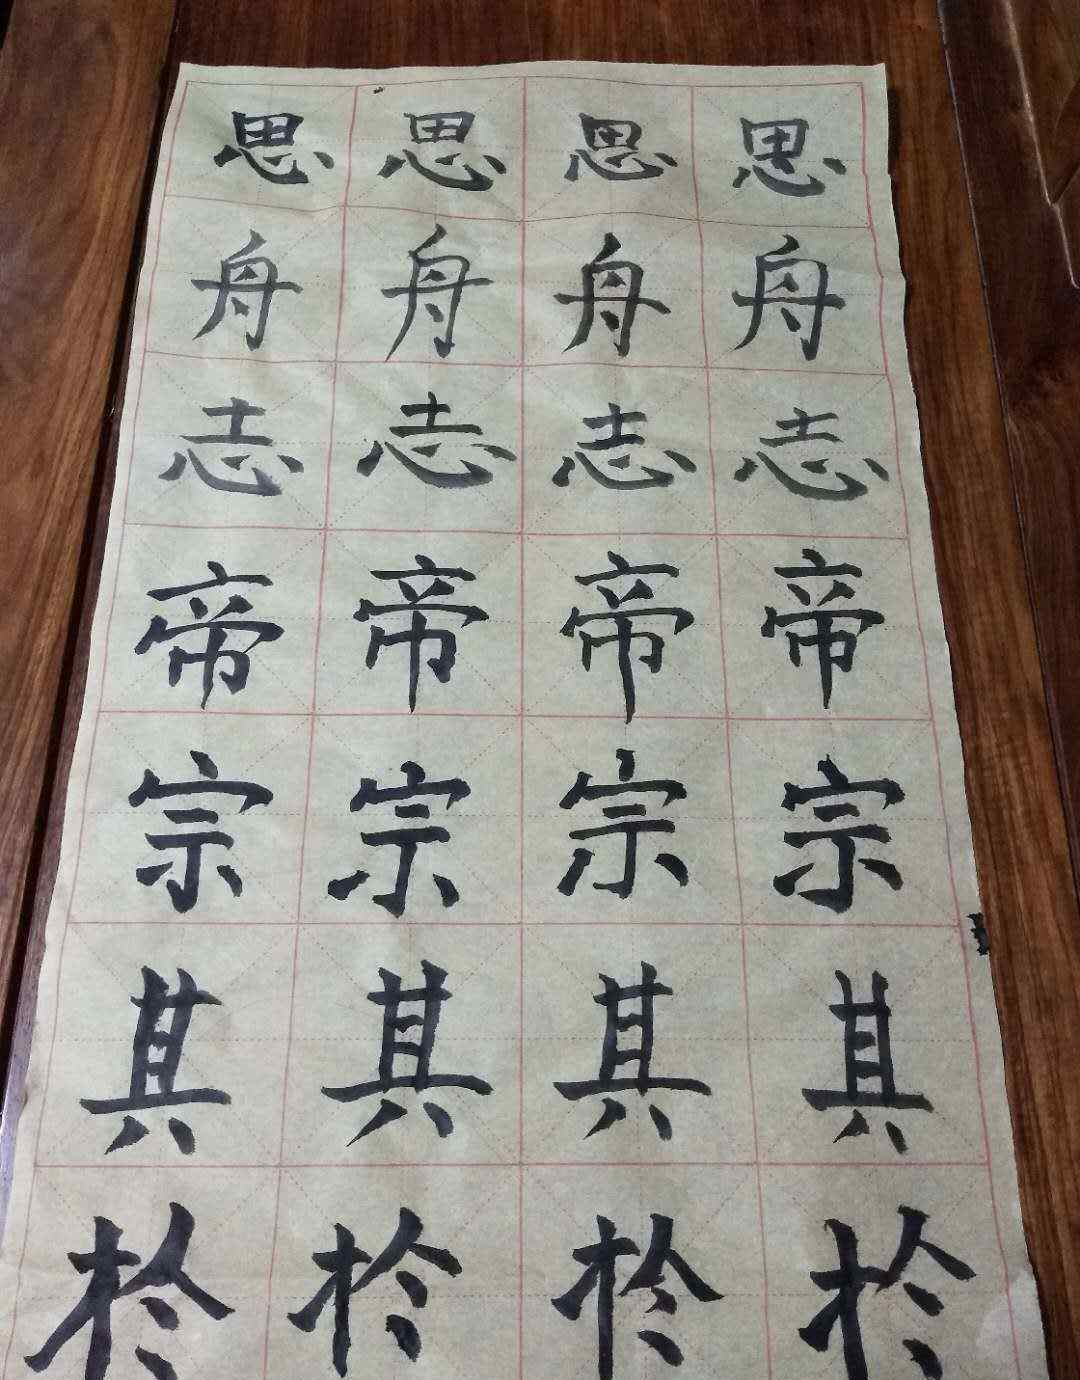 思思思思
舟舟舟舟
志志志志
帝帝帝帝
宗宗宗宗
其其其其
於於於於